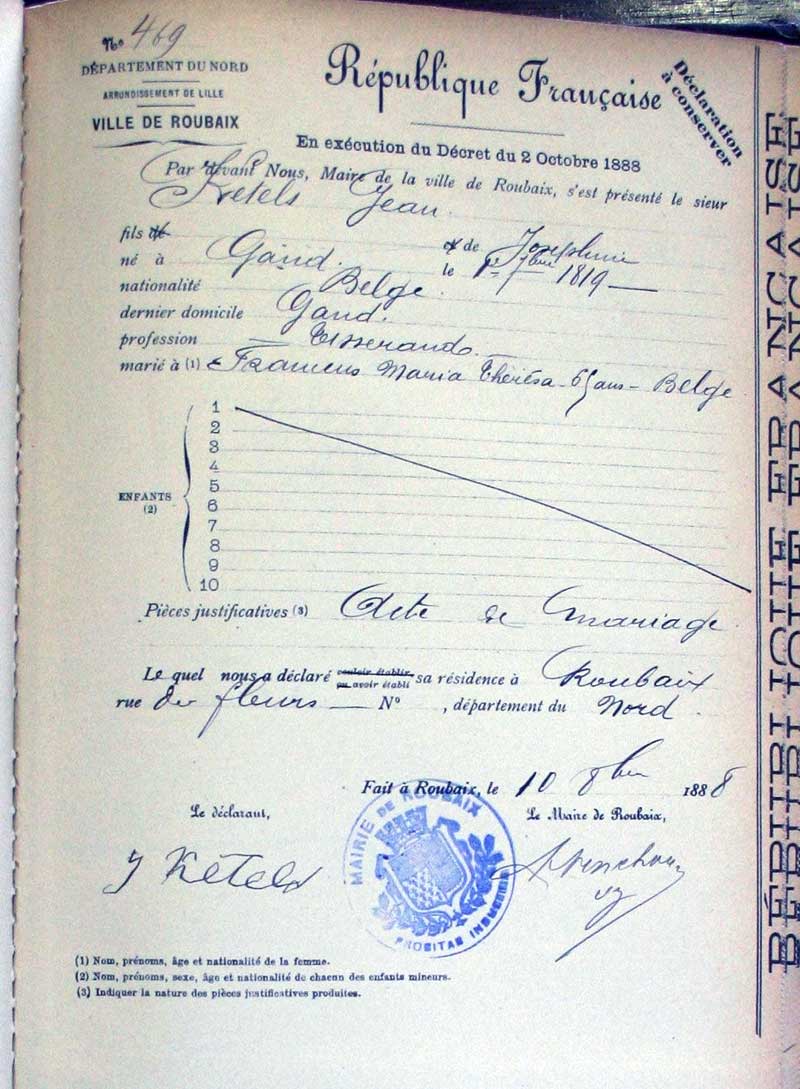 N° 469
DÉPARTEMENT DU NORD
ARRONDISSEMENT DE LILLE
VILLE DE ROUBAIX
République Française
Déclaration
à conserver
En exécution du Décret du 2 Octobre 1888
Par devant Nous, Maire de la ville de Roubaix, s'est présenté le sieur
Ketels Jean
fils de et de Josephine
né à Gand le 1er 7bre 1819
nationalité Belge
dernier domicile Gand
profession Tisserand
marié à (1) Maria Thérésa 65 ans - Belge
ENFANTS
(2)
1
2
3
4
5
6
7
8
9
10
Pièces justificatives (3) Acte de mariage
Le quel nous a déclaré vouloir établir
ou avoir établi sa résidence à Roubaix
rue des fleurs N° , département du Nord
Fait à Roubaix, le 10 8bre 1888
Le déclarant, Le Maire de Roubaix,
J Ketels
MAIRIE DE ROUBAIX
PROBITAS INDUSTRIA
(1) Nom, prénoms, âge et nationalité de la femme.
(2) Nom, prénoms, sexe, âge et nationalité de chacun des enfants mineurs.
(3) Indiquer la nature des pièces justificatives produites.